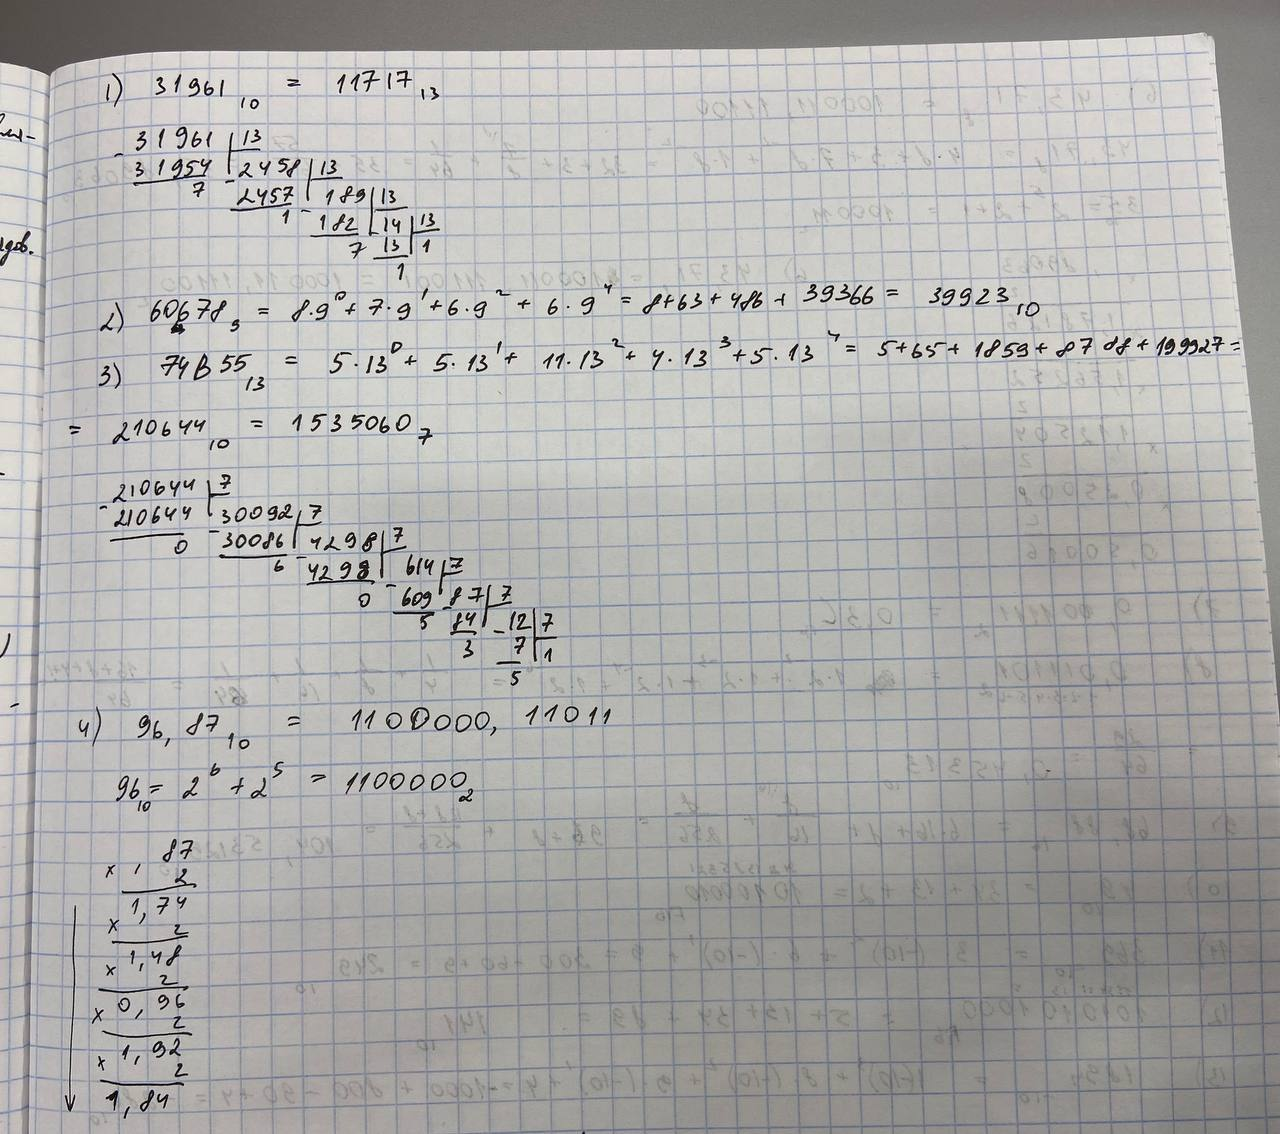 1) 31961₁₀ = 11717₁₃
- 31961 | 13
31954 - 2458 | 13
7 2457 - 189 | 13
1 182 - 14 | 13
7 13 1
1
2) 60678₉ = 8·9⁰ + 7·9¹ + 6·9² + 6·9⁴ = 8+63+486+39366 = 39923₁₀
3) 74B55₁₃ = 5·13⁰ + 5·13¹ + 11·13² + 4·13³ + 5·13⁴ = 5+65+1859+8788+199927 =
= 210644₁₀ = 1535060₇
- 210644 | 7
210644 - 30092 | 7
0 30086 - 4298 | 7
6 4298 - 614 | 7
0 609 - 87 | 7
5 84 - 12 | 7
3 7 1
5
4) 96,87₁₀ = 1100000,11011
96₁₀ = 2⁶ + 2⁵ = 1100000₂
× , 87
2
× 1,74
2
× 1,48
2
× 0,96
2
× 1,92
2
1,84